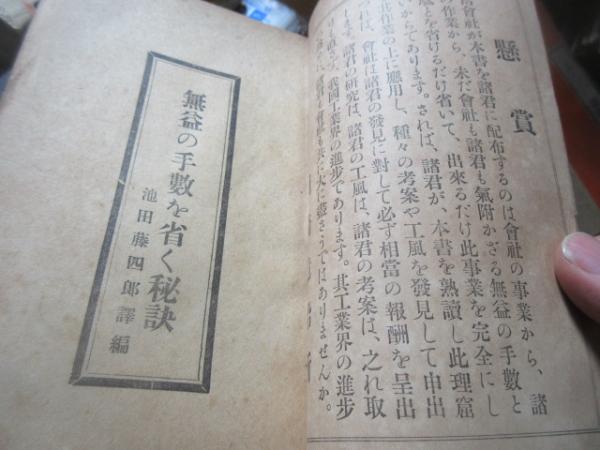 懸賞
會社が本書を諸君に配布するのは會社の事業から、諸
の作業から、未だ會社も諸君も氣附かざる無益の手數と
底とを省けるだけ省いて、出來るだけ此事業を完全にし
いからであります。されば、諸君が、本書を熟讀し此理窟
其作業の上に應用し、種々の考案や工風を發見して申出
れば、會社は諸君の發見に對して必ず相當の報酬を呈出
します。諸君の研究は、諸君の工風は、諸君の考案は、之れ取
も直さず、我國工業界の進步であります。其工業界の進步
諸君も會社も共に大に盡さうではありませんか。
無益の手數を省く秘訣
池田藤四郎譯編